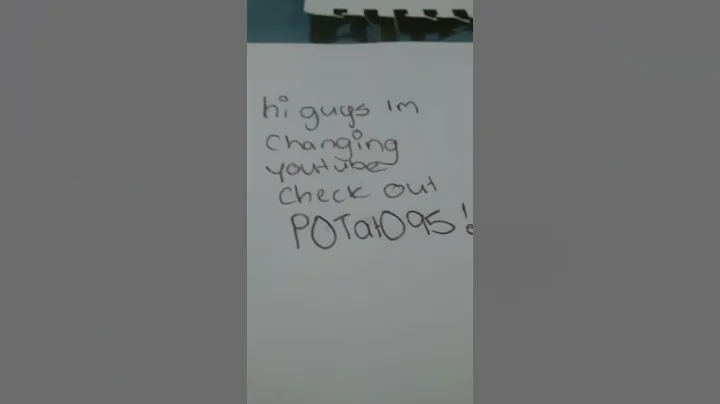 hi guys im
changing
youtube
check out
POTatO95!